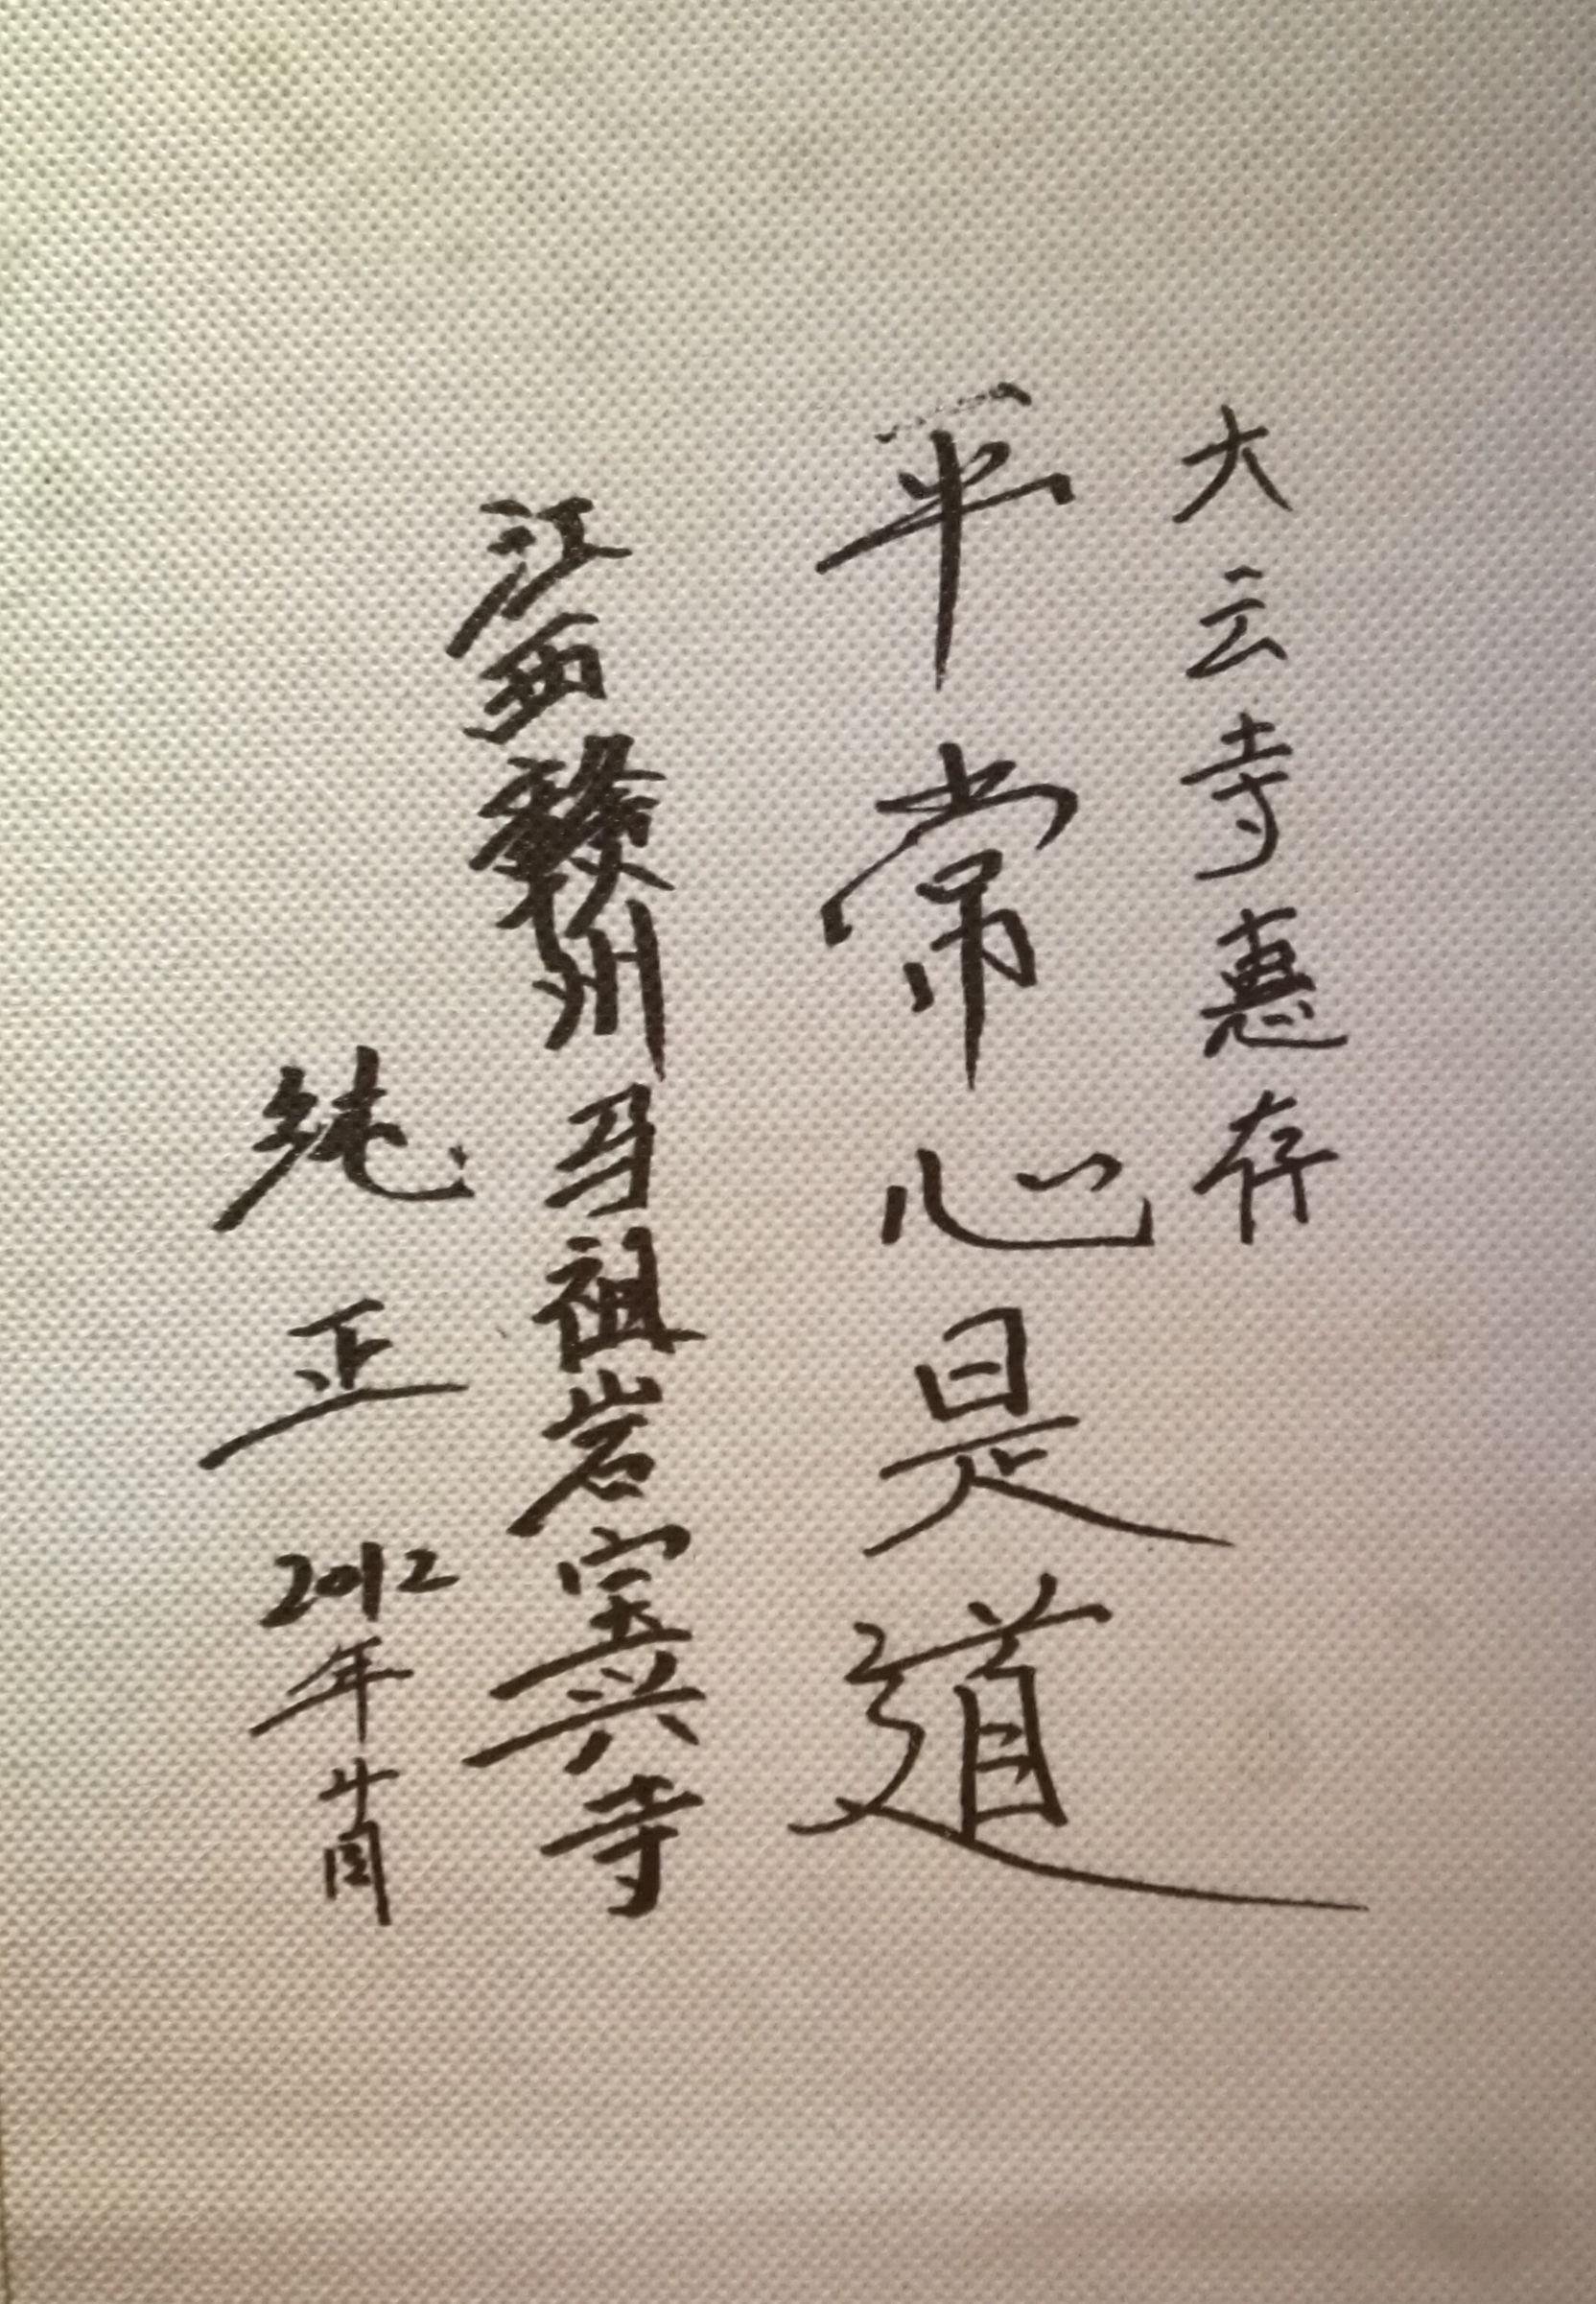 大云寺惠存
平常心是道
江西赣州马祖岩宝兴寺
纯正
2012年